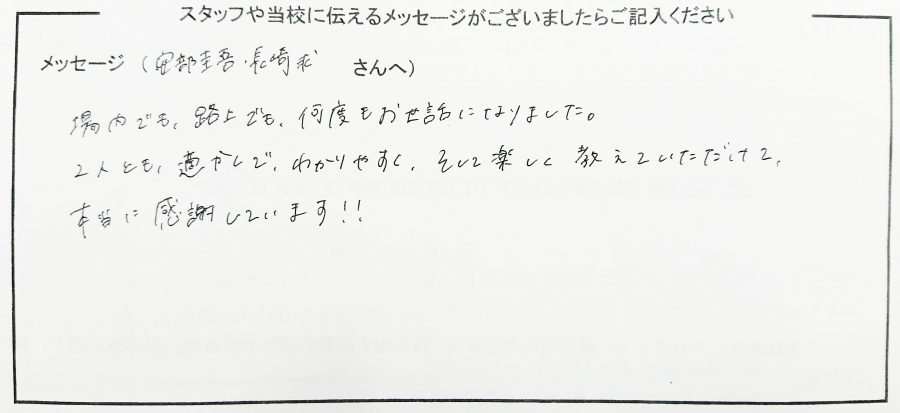 スタッフや当校に伝えるメッセージがございましたらご記入ください
メッセージ (安部圭吾・長崎求 さんへ)
場内でも、路上でも、何度もお世話になりました。
2人とも、愉かしで、わかりやすく、そして楽しく教えていただけて、
本当に感謝しています!!